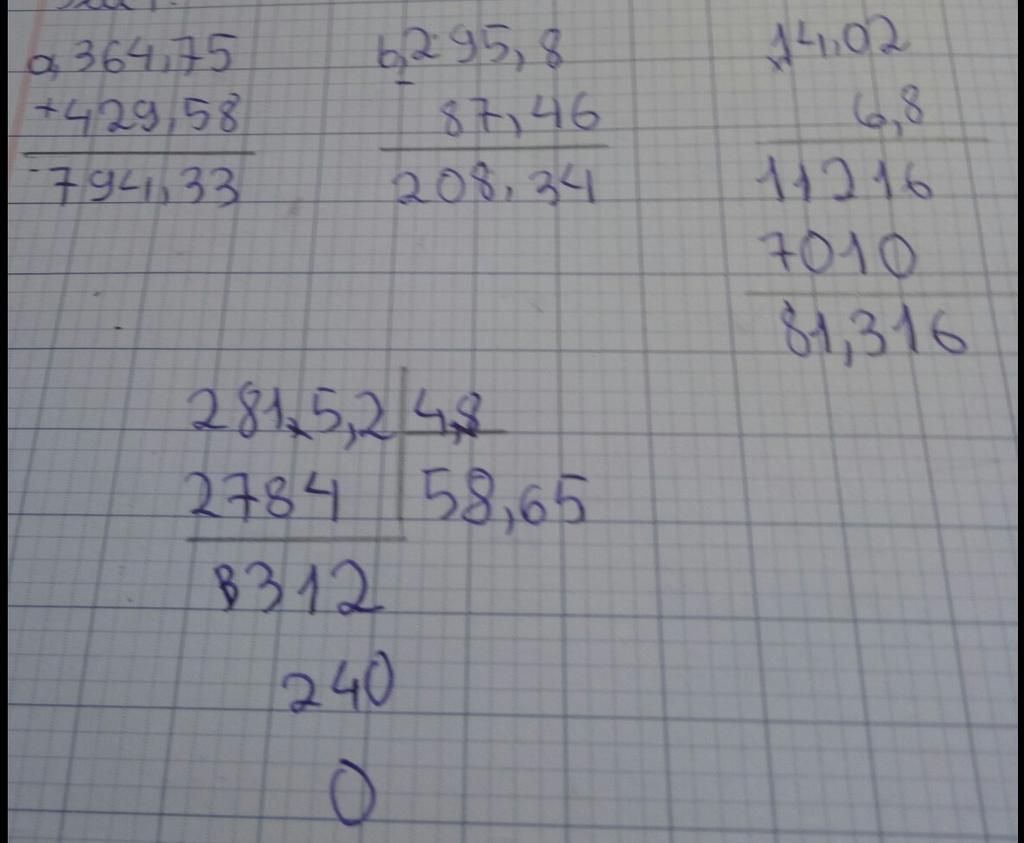 a, 364,75
+429,58
794,33
b, 295,8
- 87,46
208,34
x 14,02
6,8
11216
7010
81,316
281,5,2 | 4,8
2784 | 58,65
3312
240
0